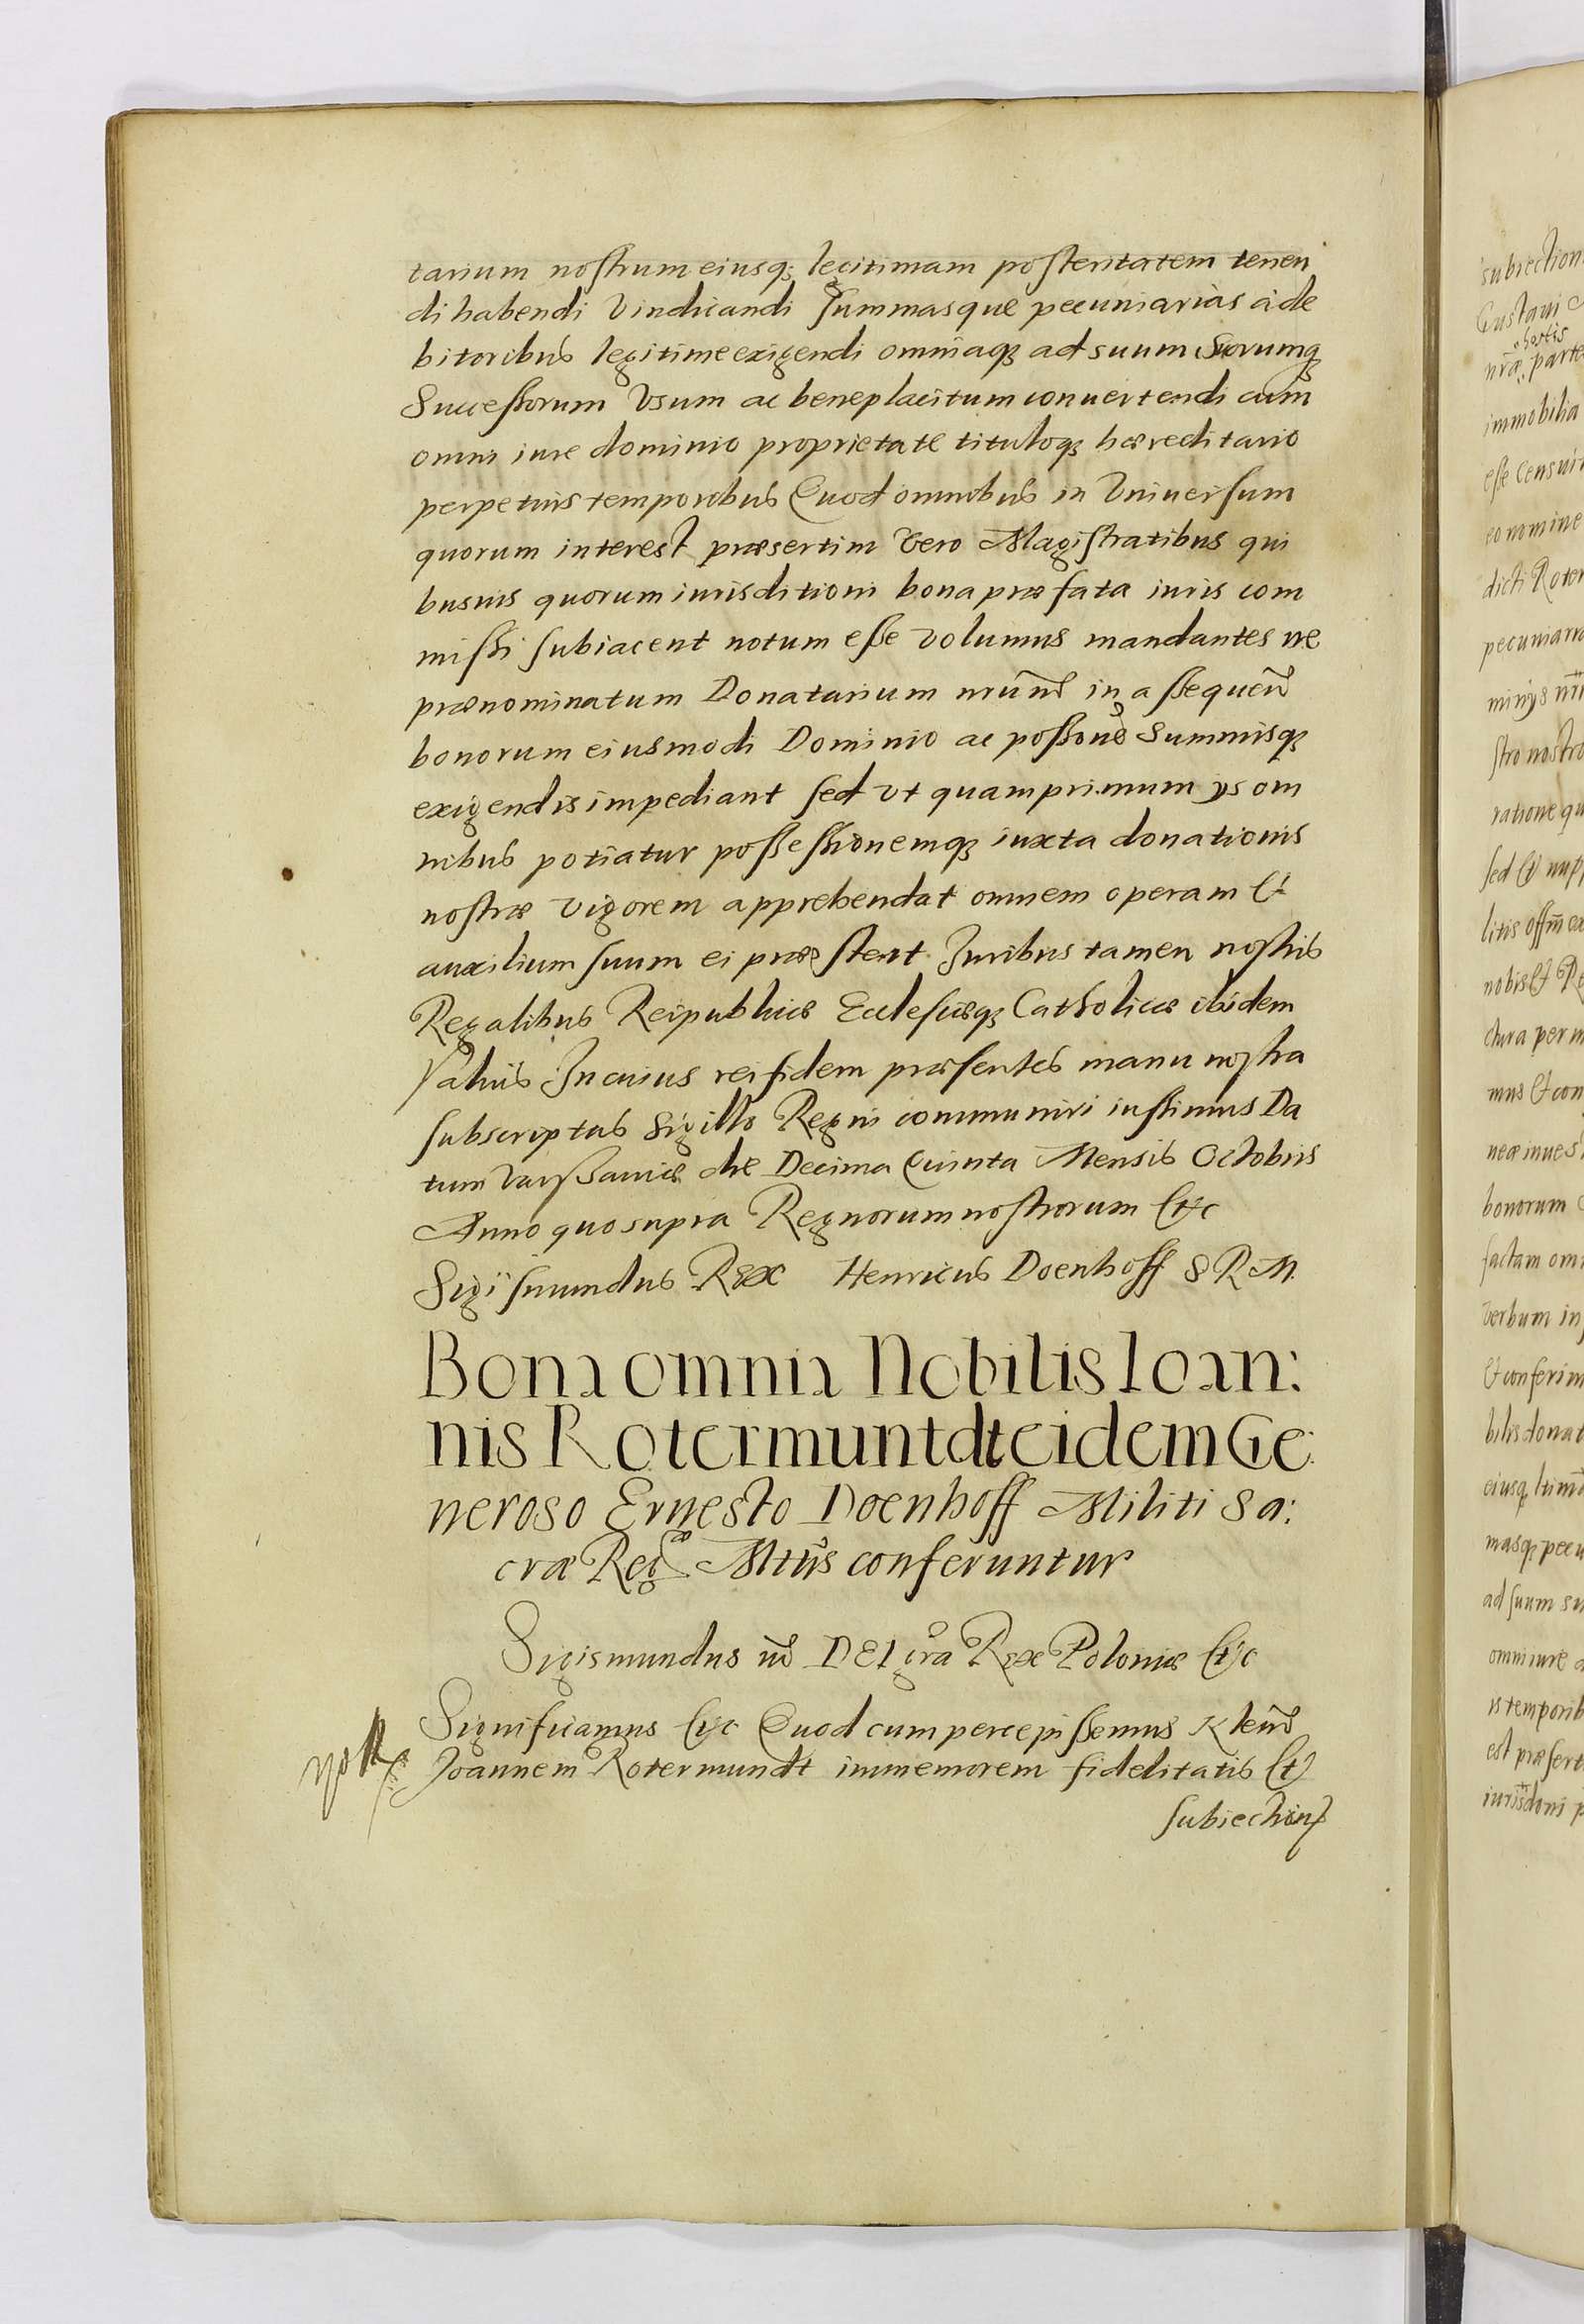 tarium nostrum eiusq; legitimam posteritatem tenen
di habendi vindicandi summasque pecuniarias à de
bitoribus legitime exigendi omniaq; ad suum suorumq;
Successorum vsum ac beneplacitum conuertendi cum
omni iure dominio proprietate tituloq; hæreditario
perpetuis temporibus Quod omnibus in vniuersum
quorum interest præsertim vero Magistratibus qui
busuis quorum iurisditioni bona præfata iuris com
missi subiacent notum esse volumus mandantes ne
prænominatum Donatarium nrūm in assequen̄
bonorum eiusmodi Dominio ac possone Summisq;
exigendis impediant sed vt quamprimum ys om
nibus potiatur possessionemq; iuxta donationis
nostræ vigorem apprehendat omnem operam et
auxilium suum ei præstent Juribus tamen nostris
Regalibus Reipublicæ Ecclesiæq; Catholicæ ibidem
saluis In cuius rei fidem præsentes manu nostra
subscriptas Sigillo Regni communiri iussimus Da
tum Varssauiæ die Decima Quinta Mensis Octobris
Anno quo supra Regnorum nostrorum etc
Sigismundus Rex Henricus Doenhoff S R M.
Bona omnia Nobilis Ioan:
nis Rotermuntdt eidem Ge:
neroso Ernesto Doenhoff Militi Sa:
cræ Regæ Mttis conferuntur
Sigismundus iii DEI gra Rex Poloniæ etc
Significamus etc Quod cum percepissemus
Joannem Rotermundt immemorem fidelitatis et
subiection
subiection
Gustaui
hostis
nræ parte
immobilia
esse censui
eo nomine
dicti Roter
pecuniari
stro nostro
ratione qu
nobis et Re
bonorum
factam om
verbum in
et conferim
bilis donat
masq; pecu
ad suum su
omni iure
is temporib
est præsert